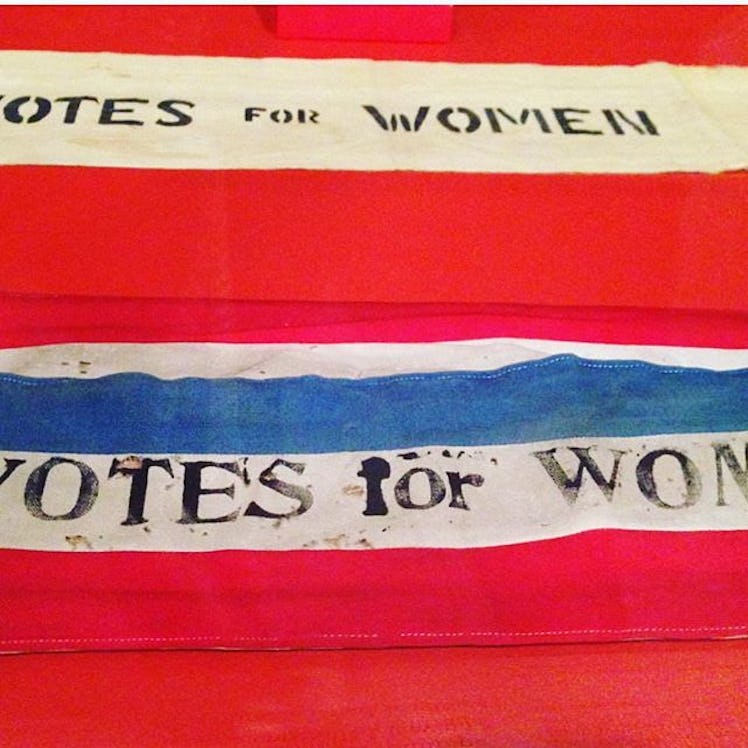 VOTES FOR WOMEN
VOTES for WOM